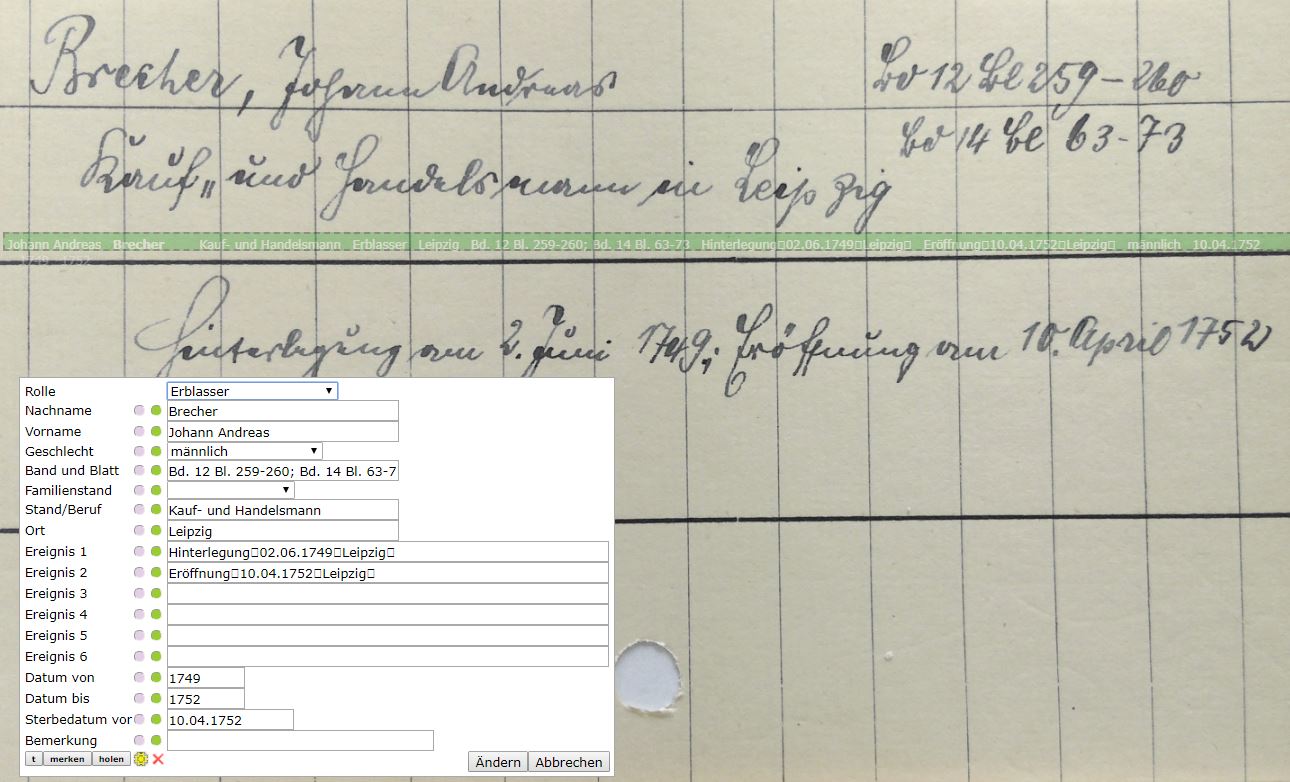 Brecher, Johann Andreas
Bd 12 Bl 259-260
Bd 14 Bl 63-73
Kauf- und Handelsmann in Leipzig
Johann Andreas Brecher Kauf- und Handelsmann Erblasser Leipzig Bd. 12 Bl. 259-260; Bd. 14 Bl. 63-73 Hinterlegung▯02.06.1749▯Leipzig▯ Eröffnung▯10.04.1752▯Leipzig▯ männlich 10.04.1752
1749 1752
Hinterlegung am 2. Juni 1749; Eröffnung am 10. April 1752
Rolle Erblasser
Nachname Brecher
Vorname Johann Andreas
Geschlecht männlich
Band und Blatt Bd. 12 Bl. 259-260; Bd. 14 Bl. 63-7
Familienstand
Stand/Beruf Kauf- und Handelsmann
Ort Leipzig
Ereignis 1 Hinterlegung▯02.06.1749▯Leipzig▯
Ereignis 2 Eröffnung▯10.04.1752▯Leipzig▯
Ereignis 3
Ereignis 4
Ereignis 5
Ereignis 6
Datum von 1749
Datum bis 1752
Sterbedatum vor 10.04.1752
Bemerkung
t merken holen Ändern Abbrechen